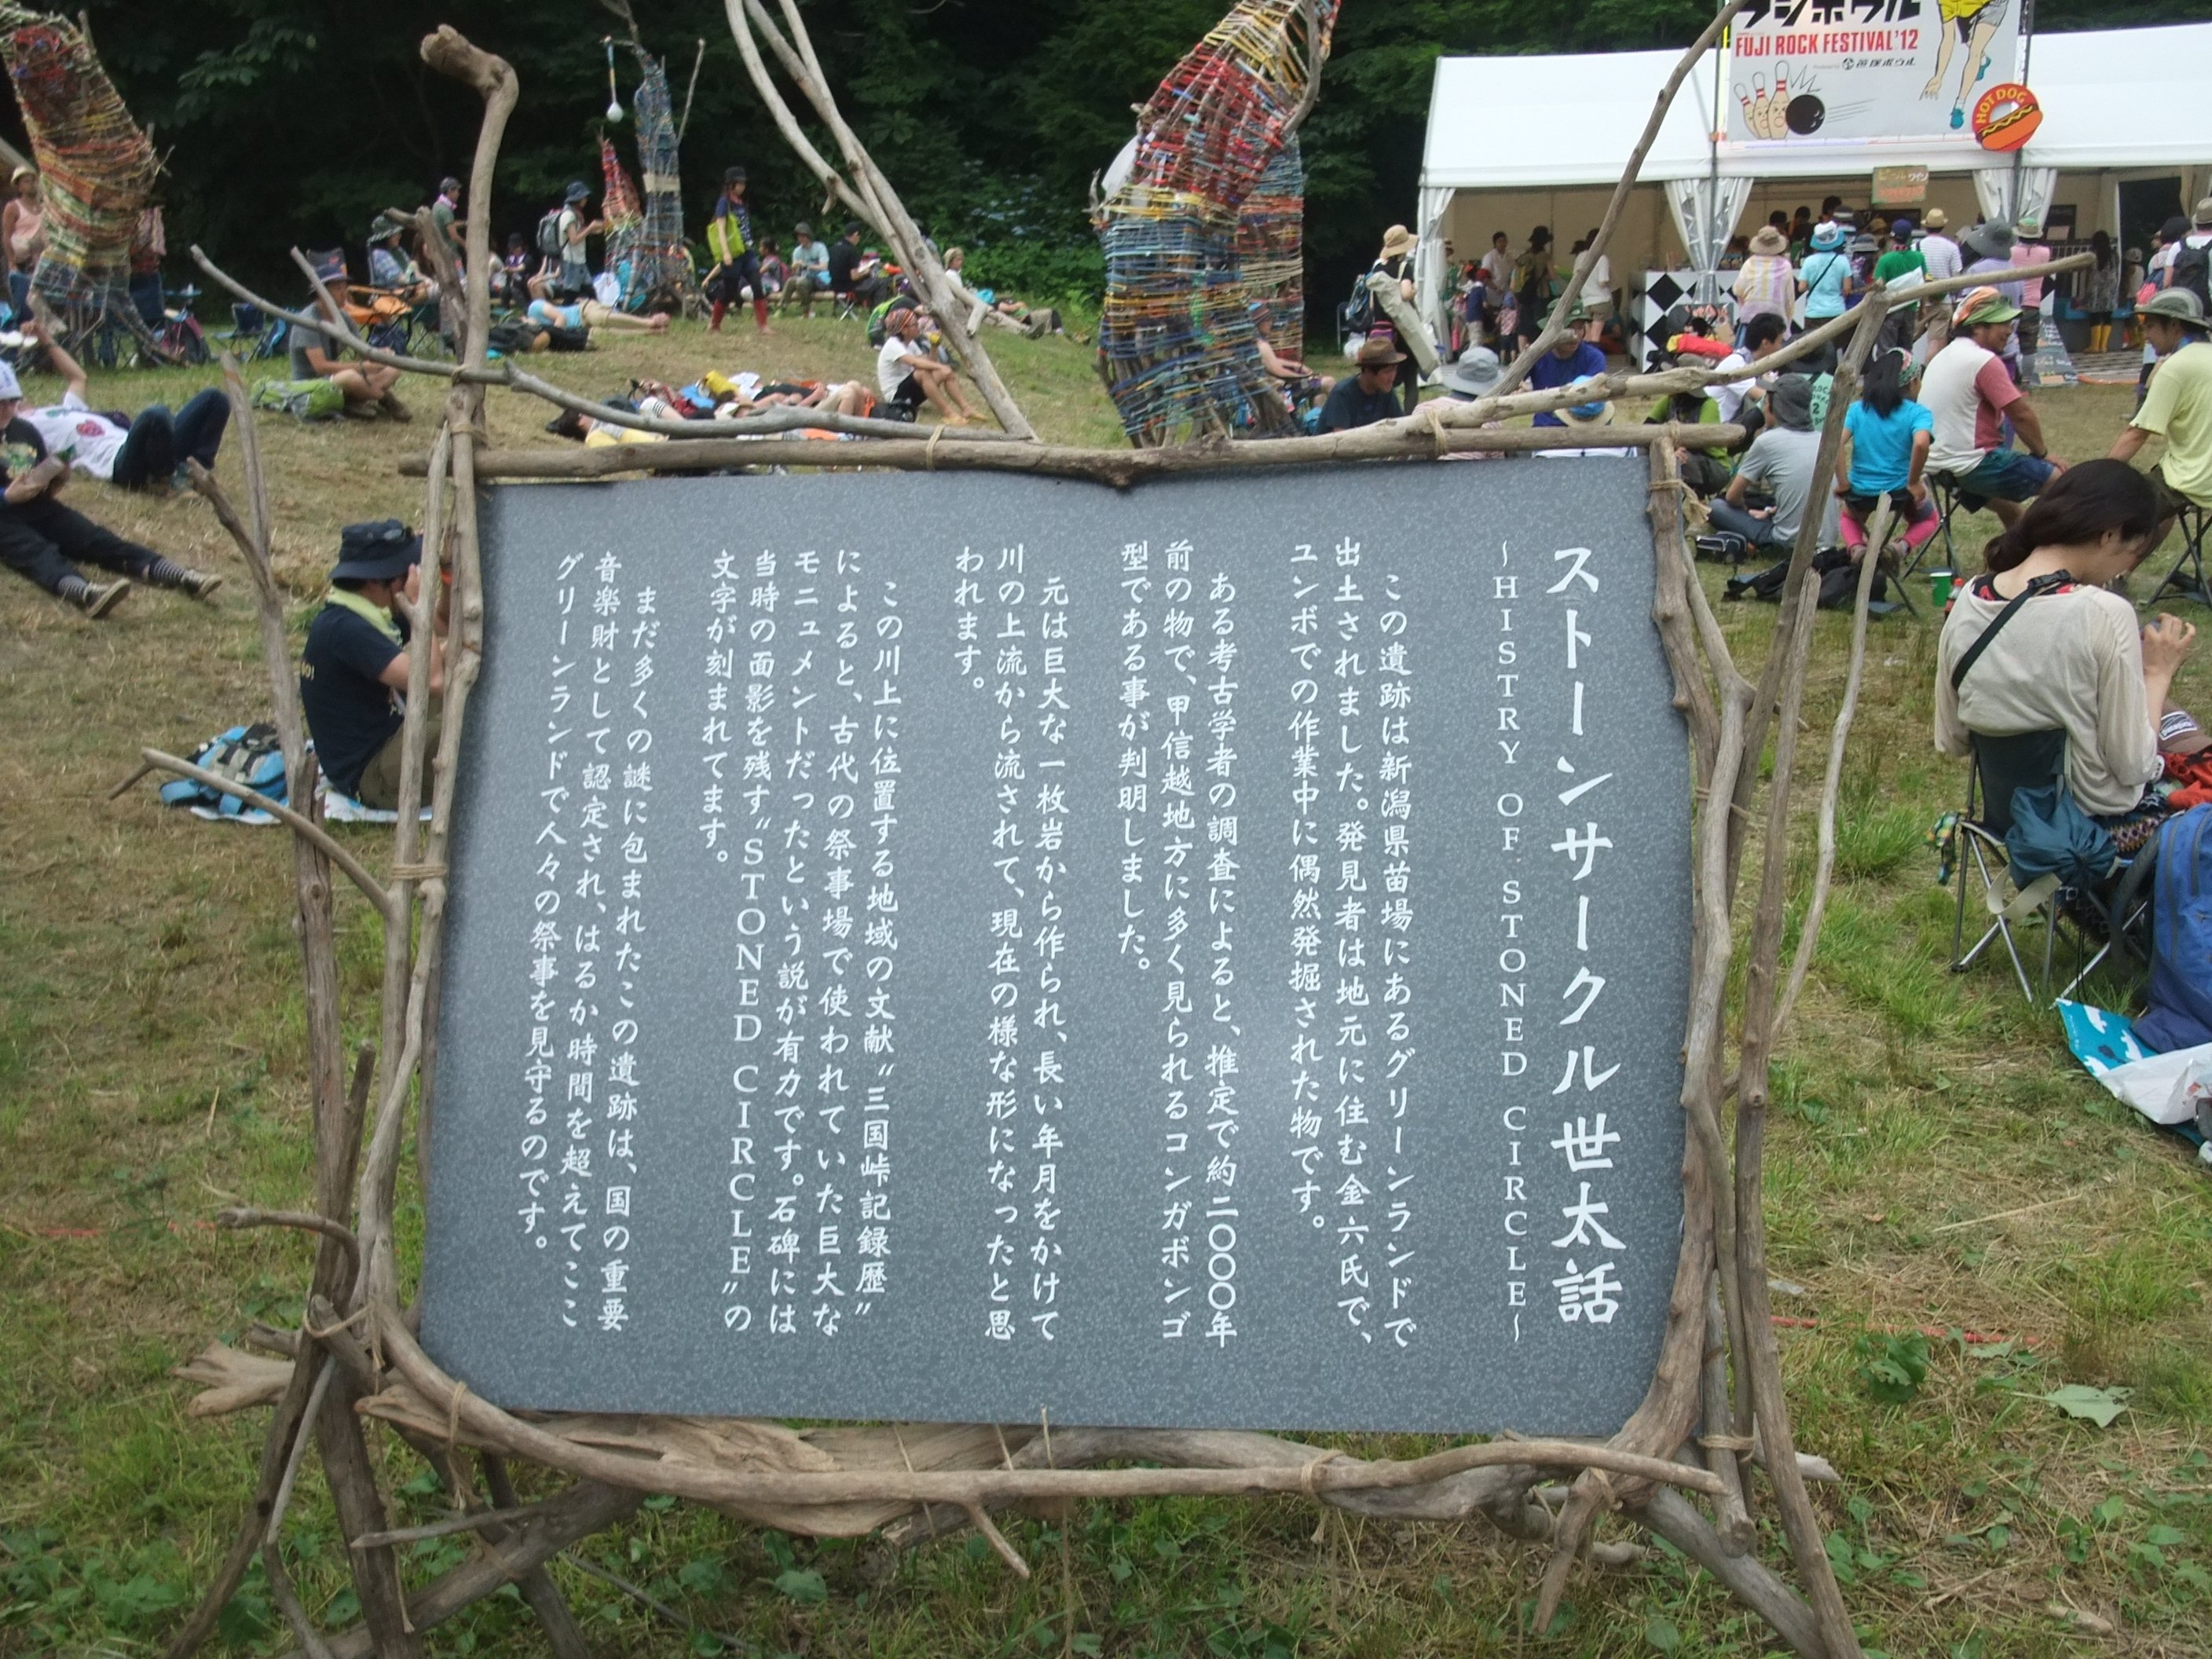 フジボウル
FUJI ROCK FESTIVAL'12
笹塚ボウル
HOT DOG
ストーンサークル世太話
～HISTRY OF STONED CIRCLE～
この遺跡は新潟県苗場にあるグリーンランドで
出土されました。発見者は地元に住む金六氏で、
ユンボでの作業中に偶然発掘された物です。
ある考古学者の調査によると、推定で約二〇〇〇年
前の物で、甲信越地方に多く見られるコンガボンゴ
型である事が判明しました。
元は巨大な一枚岩から作られ、長い年月をかけて
川の上流から流されて、現在の様な形になったと思
われます。
この川上に位置する地域の文献〝三国峠記録歴〟
によると、古代の祭事場で使われていた巨大な
モニュメントだったという説が有力です。石碑には
当時の面影を残す〝STONED CIRCLE〟の
文字が刻まれてます。
まだ多くの謎に包まれたこの遺跡は、国の重要
音楽財として認定され、はるか時間を超えてここ
グリーンランドで人々の祭事を見守るのです。